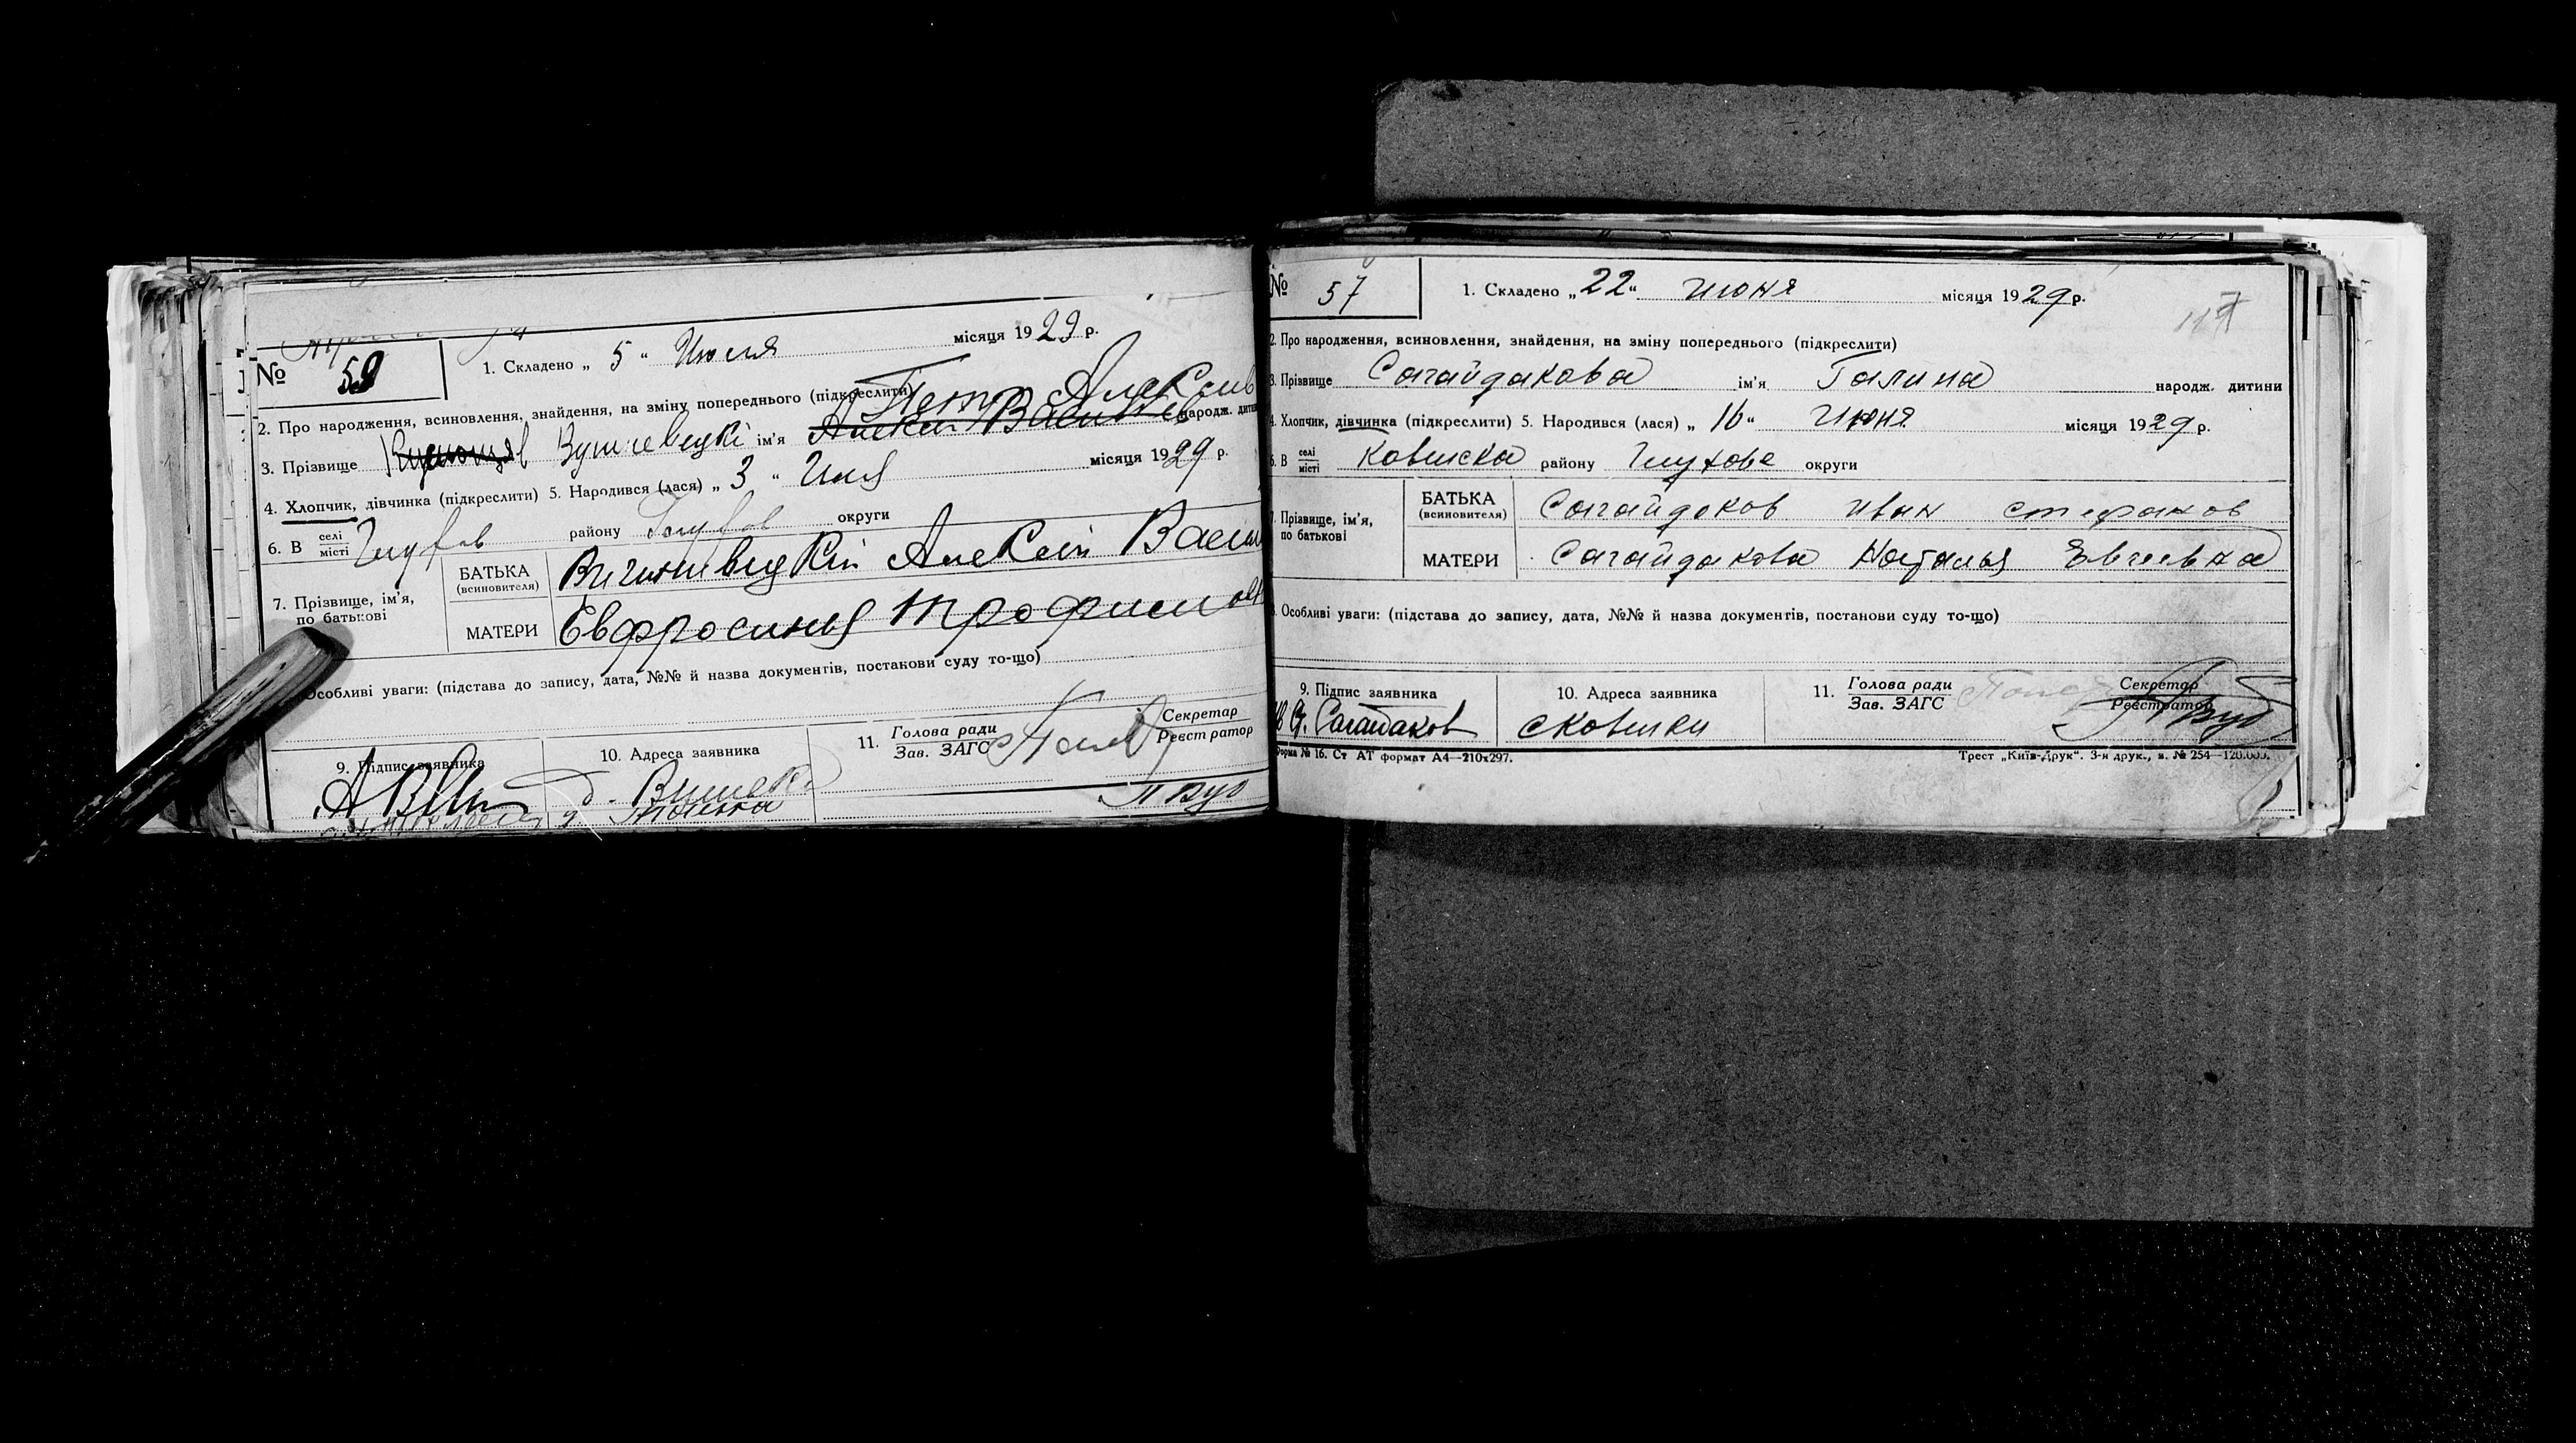 № 59
1. Складено „ 5 “ Июля місяця 1929 р.
2. Про народження, всиновлення, знайдення, на зміну попереднього (підкреслити)
Петр Алексеев
3. Прізвище ім'я Алексей Васильев народж. дити
4. Хлопчик, дівчинка (підкреслити) 5. Народився (лася) „ 3 “ місяця 1929 р.
6. В селі місті Глухов району Глухов округи
7. Прізвище, ім'я, по батькові
БАТЬКА (всиновителя) Алексей Васил
МАТЕРИ Евфросинья Трофимов
Особливі уваги: (підстава до запису, дата, №№ й назва документів, постанови суду то-що)
9. Підпис заявника
10. Адреса заявника
11. Голова ради Зав. ЗАГС
Секретар Реєстратор
№ 57
1. Складено „ 22 “ июня місяця 1929 р.
117
2. Про народження, всиновлення, знайдення, на зміну попереднього (підкреслити)
3. Прізвище Сагайдакова ім'я Галина народж. дитини
4. Хлопчик, дівчинка (підкреслити) 5. Народився (лася) „ 16 “ июня місяця 1929 р.
6. В селі місті району Глухове округи
7. Прізвище, ім'я, по батькові
БАТЬКА (всиновителя) Сагайдаков иван стефанов
МАТЕРИ Сагайдакова Наталья
8. Особливі уваги: (підстава до запису, дата, №№ й назва документів, постанови суду то-що)
9. Підпис заявника Сагайдаков
10. Адреса заявника
11. Голова ради Зав. ЗАГС
Секретар Реєстратор
Форма № 16. Ст АТ формат А4—210х297.
Трест „Київ-Друк“. 3-я друк., з. № 254—120.000.